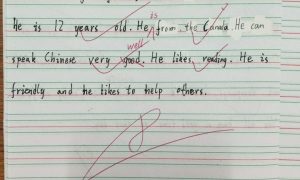 he is 12 years old. He is from the Canada. He can
speak Chinese very good. well He likes reading. He is
friendly and he likes to help others.